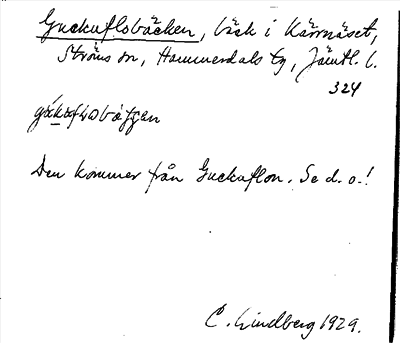 Guckuflobäcken, bäck i Kärrnäset,
Ströms sn, Hammerdals tg, Jämtl. l.
324
Den kommer från Guckuflon. Se d. o.!
C. Lindberg 1929.